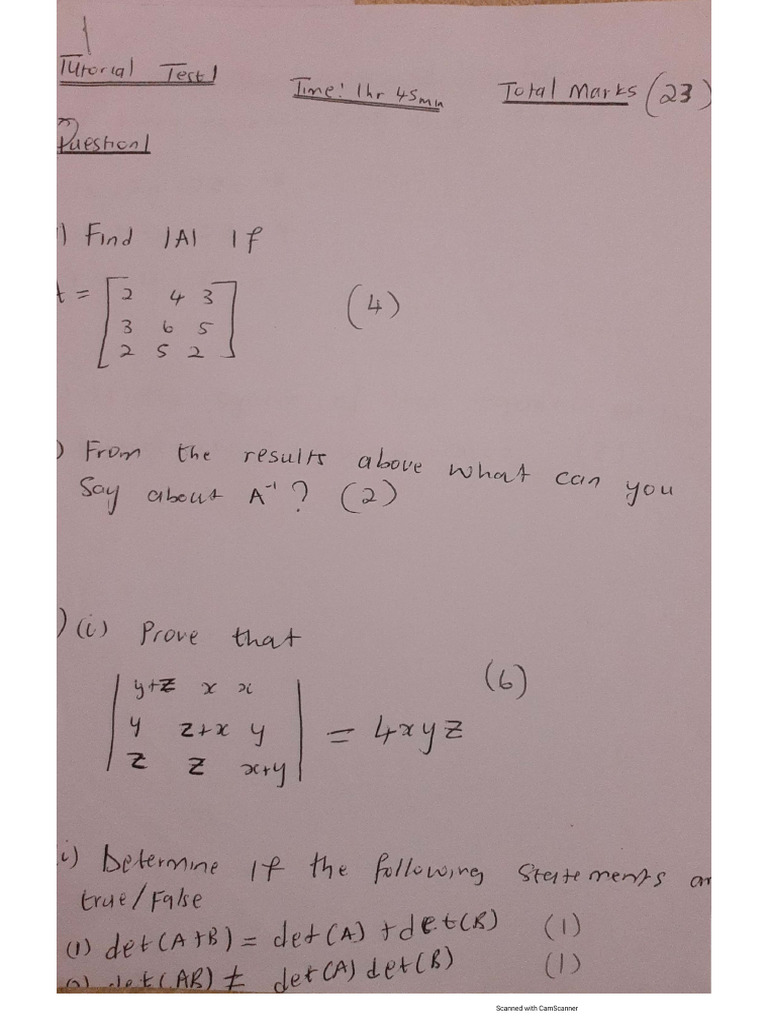 1
Tutorial Test 1 Time: 1hr 45mn Total Marks (23)
Question 1
1) Find |A| If
A = [2 4 3
3 6 5 (4)
2 5 2]
) From the results above what can you
Say about A⁻¹? (2)
) (i) Prove that
| y+z x x | (6)
| y z+x y | = 4xyz
| z z x+y |
i) Determine If the following Statements ar
true/False
(1) det(A+B) = det(A) + det(B) (1)
det(AB) ≠ det(A) det(B) (1)
Scanned with CamScanner